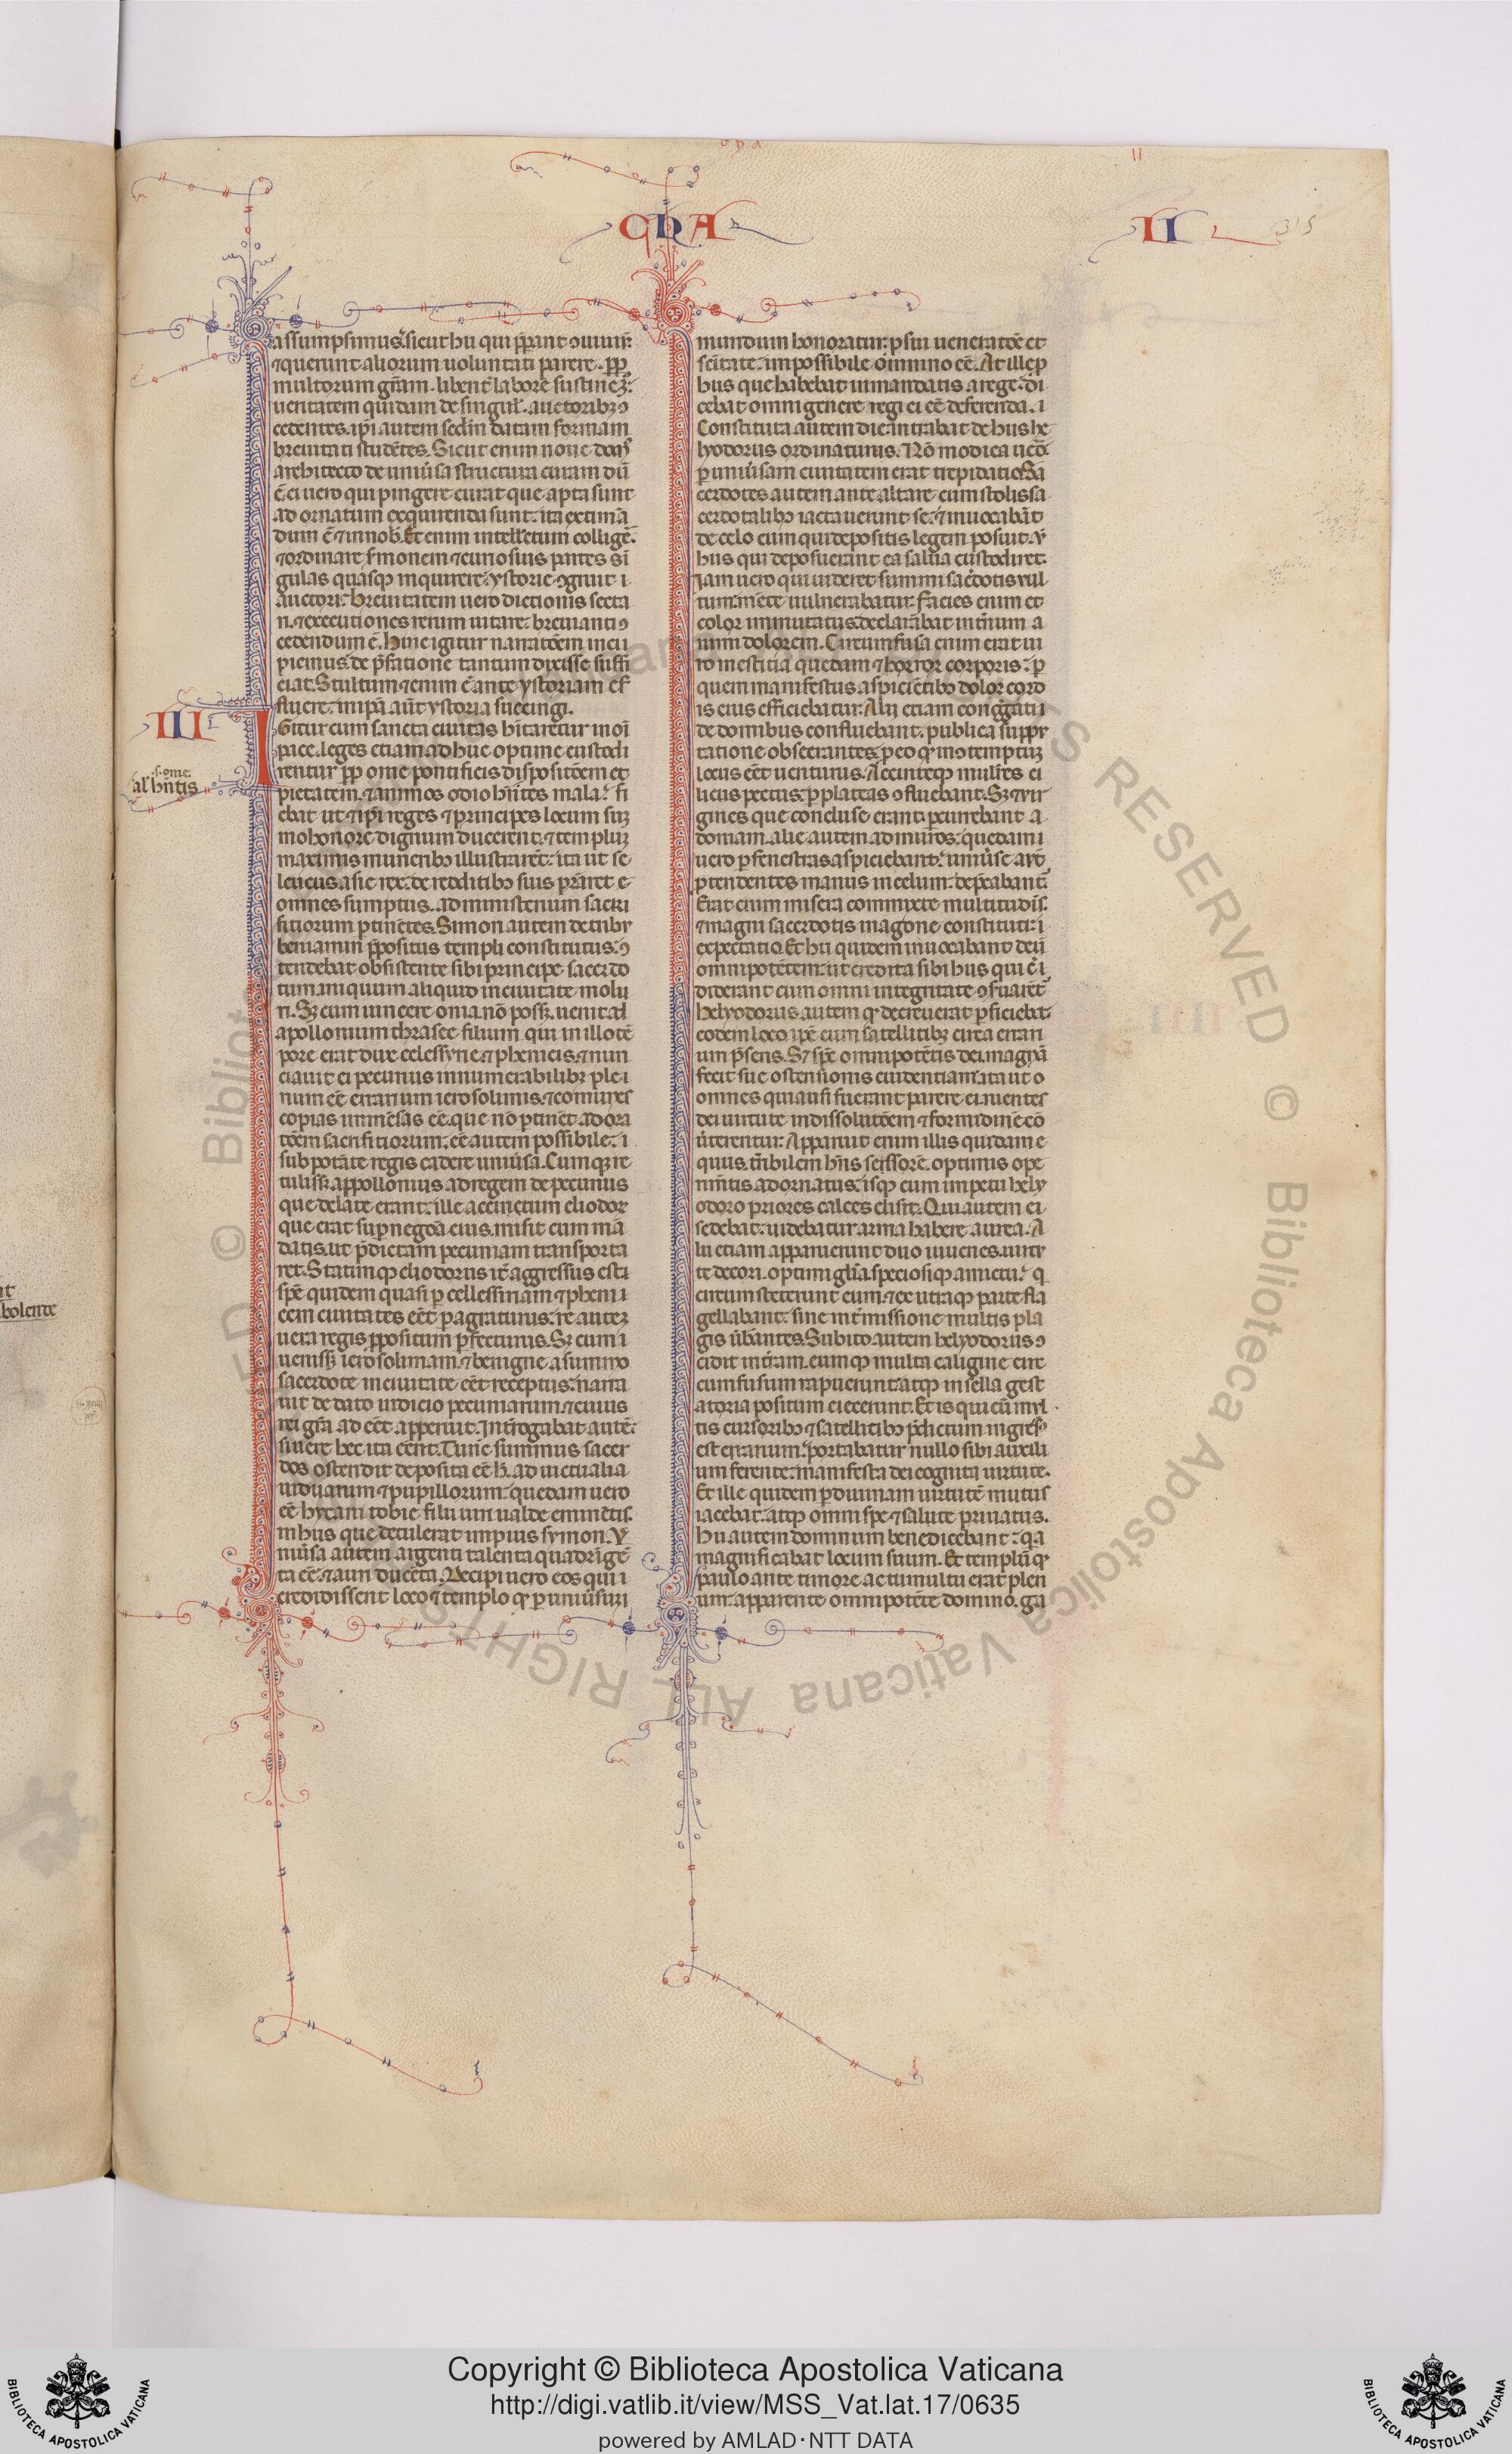 CHA
II
315
assumpsimus. sicut hii qui p̄parant ꝯuiuiū.
⁊ querunt aliorum uoluntati parere. ꝓp̄
multorum gr̄am. libent̄ laborē sustinemꝰ.
ueritatem quidam de singul'. auctoribꝫ ꝯ
cedentes. ip̄i autem sed'm datam formam
breuitati studētes. Sicut enim noue domꝰ
architecto de uniu'sa structura curam dū
ē. ei uero qui pingere curat que apta sunt
ad ornatum exquirenda sunt. ita extimā
dum ē ⁊ in nob'. Et enim intell'ectum colligē.
⁊ ordinare s'monem ⁊ curiosius partes si
gulas quasqꝫ inquirere. ystorie ꝯgruit i
auctori. breuitatem uero dictionis secta
ri. ⁊ executiones rerum uitare. breuianti ꝯ
cedendum ē. Hinc igitur narratōem incii
piemus. de p̄fatione tantum dixisse suffi
ciat. Stultum ⁊enim ē ante ystoriam ef
fluere. in ip̄a aūt ystoria succingi.
III
Igitur cum sancta ciuitas hītaretur in oī
pace. leges etiam ad huc optime custodi
rentur ꝓp̄ onie pontificis dispositōem et
s. onie.
al' hn̄tis
pietatem. ⁊ animos odio hn̄tes mala. fi
ebat ut ⁊ ip̄i reges ⁊ principes locum sūmo
mo honore dignum ducerent. ⁊ templum
maximis muneribꝫ illustrarēt. ita ut se
leucus asie rex. de redditibꝫ suis p̄staret e
omnes sumptus. ad ministerium sacri
fitiorum ꝑtinētes. Simon autem de tribu
beniamin p̄positus templi constitutus. ꝯ
tendebat obsistente sibi principe sacerdo
tum aniquum aliquid in ciuitate moliri
ri. Sꝫ cum uincere oniā nō possꝫ. uenit ad
apollonium tharsee filium qui in illo tē
pore erat dux celessyrie. ⁊ phenicis. ⁊ nun
ciauit ei pecuniis innumerabilibꝫ ple i
num eē erarium ierosolimis. ⁊ comunes
copias immēsas eē. que nō ꝑtinēt ad ora
tōem sacrifitiorum. eē autem possibile. i
sub potāte regis cadere uniu'sa. Cumqꝫ re
tulissꝫ appollonius ad regem de pecuniis
que delate erant. ille accinctum eliodor
qui erat sup̄ negotia eius. misit cum mā
datis. ut p̄dictam pecuniam transporta
ret. Statimqꝫ eliodorus it̄ aggressus est i
spē quidem quasi ꝑ celessiriam ⁊ pheni i
cem ciuitates eēt ꝑagraturus. re autem
uera regis ꝓpositum ꝑfecturus. Sꝫ cum i
uenissꝫ ierosolimam. ⁊ benigne a summo
sacerdote in ciuitate eēt receptus. narra
uit de dato iudicio pecuniarum. ⁊ cuius
rei gr̄a ad eēt apperuit. Int̄rogabat autē.
si uere hec ita eēnt. Tunc summus sacer
dos ostendit deposita eē h'. ad uictualia
uiduarum ⁊ pupillorum. quedam uero
eē hyrcani tobie filii uiri ualde eminētis.
in hiis que detulerat impius symon. V
niu'sa autem argenti talenta quadrīgē
ta eē. ⁊ auri ducēta. Decipi uero eos qui i
credidissent loco ⁊ templo qꝫ ꝑ uniu'sum
mundum honoratur. ꝓ sui ueneratōe et
scītate. impossibile omnino eē. At ille ꝓ
hiis que habebat in mandatis a rege. di
cebat omni genere regi ea eē deferenda. i
Constituta autem die intrabat de hiis he
lyodorus ordinaturus. Nō modica uero
ꝑ uniu'sam ciuitatem erat trepidatio. Sa
cerdotes autem ante altare cum stolis sa
cerdotalibꝫ iactauerunt se. ⁊ inuocabāt
de celo eum qui depositis legem posuit. ut
hiis qui deposuerant ea salua custodiret.
Iam uero qui uideret summi sac'dotis uul
tum. mente uulnerabatur. Facies enim et
color immutatus. declarabat int̄num a
nimi dolorem. Circumfusa enim erat ui
ro mestitia quedam ⁊ horror corporis. ꝑ
quem manifestus aspiciētibꝫ dolor cord
is eius efficiebatur. Alii etiam congregati i
de domibus confluebant. publica suppli
catione obsecrantes. ꝓ eo qꝫ in ꝯtemptum
locus eēt uenturus. Accinteqꝫ mulieres ci
liciis pectus. ꝑ plateas ꝯfluebant. Sꝫ ⁊ uir
gines que concluse erant. ꝓcurrebant a
doniam. alie autem ad muros. quedam i
uero ꝑ fenestras aspiciebant. uniu'se aut̄
ꝓtendentes manus in celum. dep̄cabant̄.
Erat enim misera commixte multitudīs.
⁊ magni sacerdotis in agone constituti. i
expectatio. Et hii quidem inuocabant deū
omnipotētem. ut credita sibi hiis qui c'i
diderant cum omni integritate ꝯs'uarēt.
helyodorus autem qꝫ decreuerat ꝑficiebat
eodem loco ip̄e cum satellitibꝫ circa erari
um p̄sens. Sꝫ sp̄c omnipotētis dei. magnā
fecit sue ostensionis euidentiam. ita ut o
omnes qui ausi fuerant parere ei. ruentes
dei uirtute in dissolutōem ⁊ formidinē cō
u'terentur. Apparuit enim illis quidam e
quus. t̄ribilem hn̄s sessorē. optimis ope
rim̄tis adornatus. isqꝫ cum impetu hely
odoro priores calces elisit. Qui autem ei
sedebat. uidebatur arma habere aurea. A
lii etiam apparuerunt duo iuuenes. uirtu
te decori. optimi gl'ia. speciosiqꝫ amictu. q
circumsteterunt eum. ⁊ ex utraqꝫ parte fla
gellabant. sine int̄missione multis pla
gis u'b'antes. Subito autem helyodorus ꝯ
cidit in t̄ram. eumqꝫ multa caligine circ
cumfusum rapuerunt. atqꝫ in sella gest
atoria positum eiecerunt. Et is qui cū mul
tis cursoribꝫ ⁊ satellitibꝫ p̄dictum ingresꝰ
est erarium. portabatur nullo sibi auxili
um ferente. manifesta dei cognita uirtute.
Et ille quidem ꝑ diuinam uirtutē mutus
iacebat. atqꝫ omni spe ⁊ salute priuatus.
Hii autem dominum benedicebant. qa
magnificabat locum suum. Et templū qꝫ
paulo ante timore ac tumultu erat plen
um. apparente omnipotēte domino. ga
nt
bolente
Copyright © Biblioteca Apostolica Vaticana
http://digi.vatlib.it/view/MSS_Vat.lat.17/0635
powered by AMLAD·NTT DATA
BIBLIOTECA APOSTOLICA VATICANA
BIBLIOTECA APOSTOLICA VATICANA
© Biblioteca Apostolica Vaticana ALL RIGHTS RESERVED